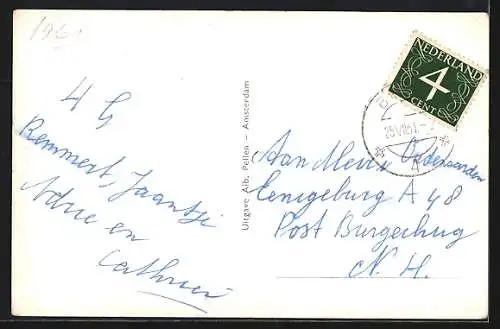 1961
4 G
Remmert, Jaantje
Adrie en
Cathrien
Uitgave Alb. Pellen – Amsterdam
NEDERLAND
4
CENT
Aan Mevr
Eenigeburg A 48
Post Burgerbrug
N. H.